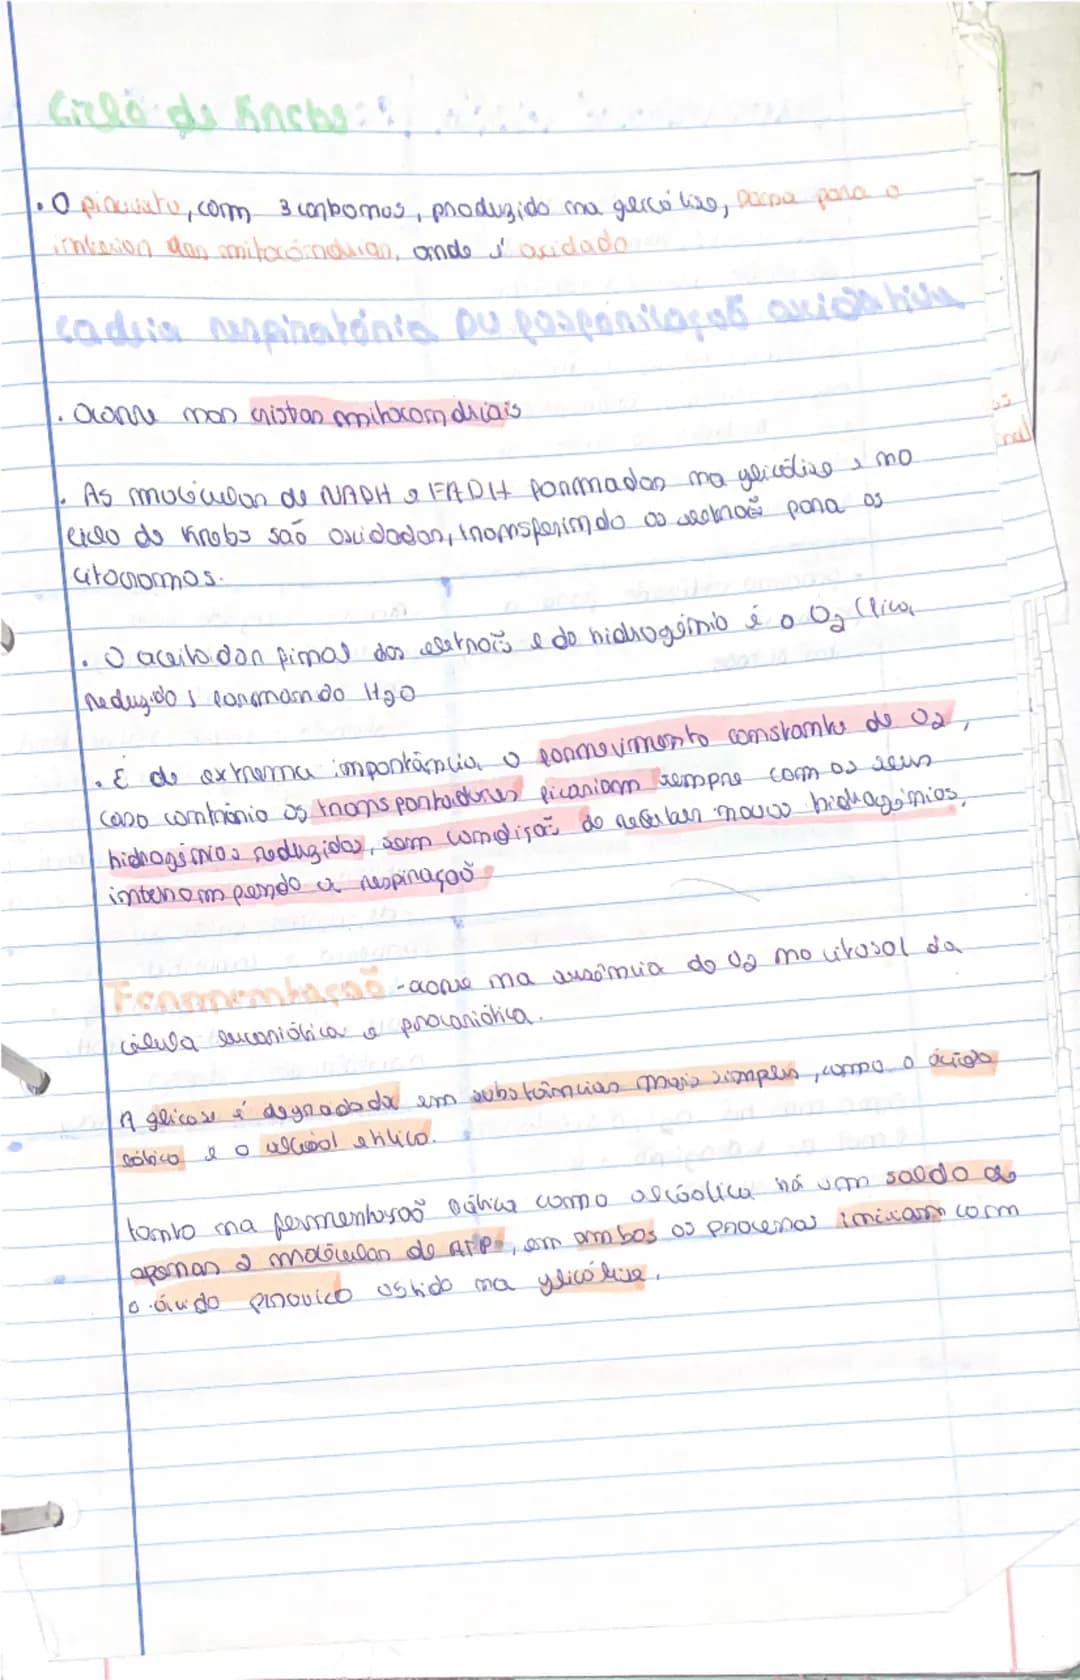 Ciclo de Krebs:
. O piruvato, com 3 carbonos, produzido na glicólise, passa para o
interior das mitocôndrias, onde é oxidado
cadeia respiratória ou fosforilação oxidativa
. Ocorre nas cristas mitocondriais
. As moléculas de NADH e FADH formadas na glicólise e no
ciclo de Krebs são oxidadas, transferindo os eletrões para os
citocromos.
. O aceitador final dos eletrões e do hidrogénio é o O2 (fica
reduzido), formando H2O
. É de extrema importância o fornecimento constante de O2,
caso contrário os transportadores ficariam sempre com os seus
hidrogénios reduzidos, sem condição de receber novos hidrogénios,
interrompendo a respiração
Fermentação - ocorre na ausência de O2 no citosol da
célula eucariótica e procariótica.
A glicose é degradada em substâncias mais simples, como o ácido
lático e o álcool etílico.
tanto na fermentação lática como alcóolica há um saldo de
apenas 2 moléculas de ATP, em ambos os processos iniciam com
o ácido pirúvico obtido na glicólise.